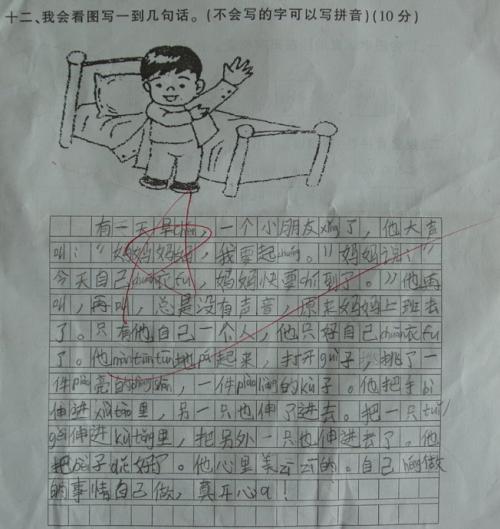 十二、我会看图写一到几句话。(不会写的字可以写拼音)(10分)
有一天早chén，一个小朋友xǐng了，他大声
叫：“妈妈妈妈，我要起chuáng。”妈妈说：“
今天自己chuān衣fu，妈妈快要chí到了。”他再
叫，再叫，总是没有声音，原来妈妈上班去
了。只有他自己一个人，他只好自己chuān衣fu
了。他màn tūn tūn地pá起来，打开guì子，挑了一
件piào亮的，一件piào liàng的kù子。他把手bì
伸进xiù tǒng里，另一只也伸了进去。把一只tuǐ
伸进kù tǒng里，把另外一只也伸进去了。他
把子好了。他心里美zī zī的。自己néng做
的事情自己做，真开心a！